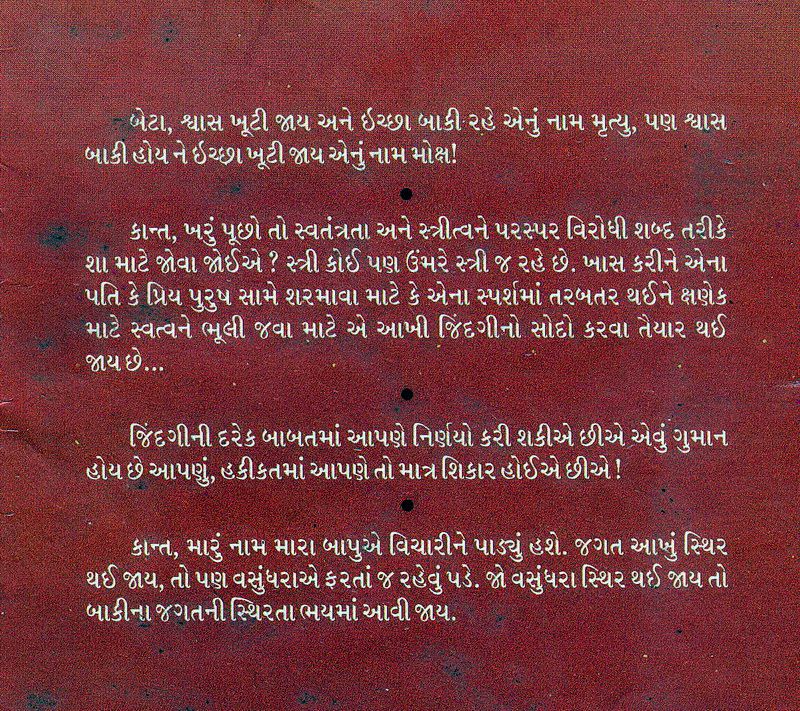 બેટા, શ્વાસ ખૂટી જાય અને ઇચ્છા બાકી રહે એનું નામ મૃત્યુ, પણ શ્વાસ
બાકી હોય ને ઇચ્છા ખૂટી જાય એનું નામ મોક્ષ!
●
કાન્ત, ખરું પૂછો તો સ્વતંત્રતા અને સ્ત્રીત્વને પરસ્પર વિરોધી શબ્દ તરીકે
શા માટે જોવા જોઈએ ? સ્ત્રી કોઈ પણ ઉંમરે સ્ત્રી જ રહે છે. ખાસ કરીને એના
પતિ કે પ્રિય પુરુષ સામે શરમાવા માટે કે એના સ્પર્શમાં તરબતર થઈને ક્ષણેક
માટે સ્વત્વને ભૂલી જવા માટે એ આખી જિંદગીનો સોદો કરવા તૈયાર થઈ
જાય છે...
●
જિંદગીની દરેક બાબતમાં આપણે નિર્ણયો કરી શકીએ છીએ એવું ગુમાન
હોય છે આપણું, હકીકતમાં આપણે તો માત્ર શિકાર હોઈએ છીએ !
●
કાન્ત, મારું નામ મારા બાપુએ વિચારીને પાડ્યું હશે. જગત આખું સ્થિર
થઈ જાય, તો પણ વસુંધરાએ ફરતાં જ રહેવું પડે. જો વસુંધરા સ્થિર થઈ જાય તો
બાકીના જગતની સ્થિરતા ભયમાં આવી જાય.